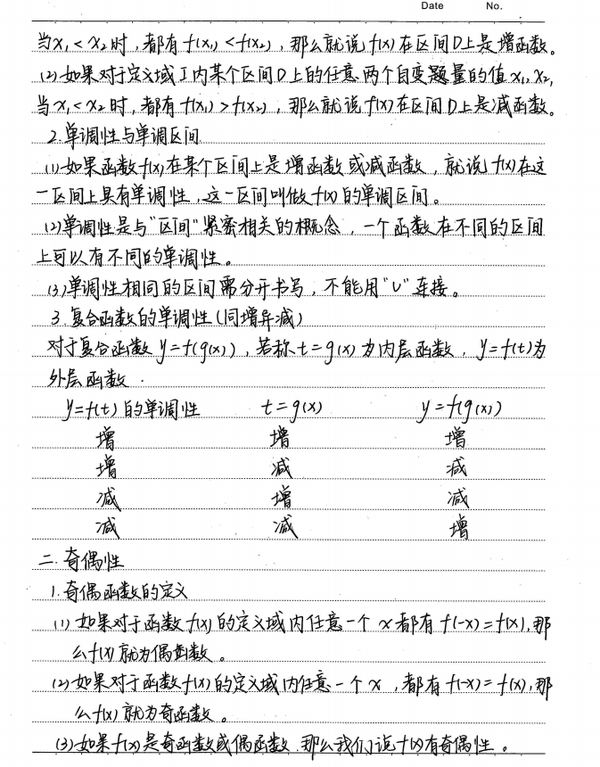 Date No.
当x₁<x₂时,都有f(x₁)<f(x₂),那么就说f(x)在区间D上是增函数。
(2)如果对于定义域I内某个区间D上的任意两个自变题量的值x₁,x₂,
当x₁<x₂时,都有f(x₁)>f(x₂),那么就说f(x)在区间D上是减函数。
2.单调性与单调区间
(1)如果函数f(x)在某个区间上是增函数或减函数,就说f(x)在这
一区间上具有单调性,这一区间叫做f(x)的单调区间。
(2)单调性是与"区间"紧密相关的概念,一个函数在不同的区间
上可以有不同的单调性。
(3)单调性相同的区间需分开书写,不能用"∪"连接。
3.复合函数的单调性(同增异减)
对于复合函数y=f(g(x)),若称t=g(x)为内层函数,y=f(t)为
外层函数.
y=f(t)的单调性 t=g(x) y=f(g(x))
增 增 增
增 减 减
减 增 减
减 减 增
二.奇偶性
1.奇偶函数的定义
(1)如果对于函数f(x)的定义域内任意一个x都有f(-x)=f(x),那
么f(x)就为偶函数。
(2)如果对于函数f(x)的定义域内任意一个x,都有f(-x)=f(x),那
么f(x)就为奇函数。
(3)如果f(x)是奇函数或偶函数.那么我们说f(x)有奇偶性。